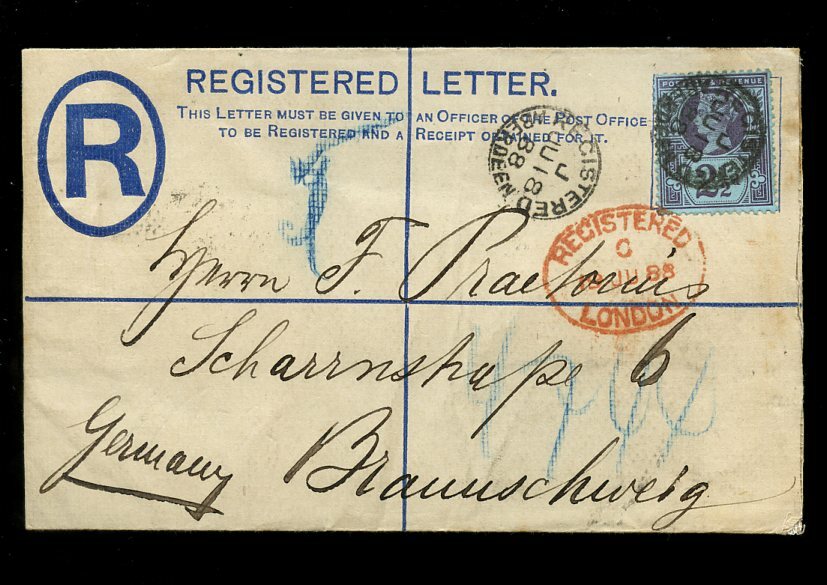 R
REGISTERED LETTER.
THIS LETTER MUST BE GIVEN TO AN OFFICER OF THE POST OFFICE
TO BE REGISTERED AND A RECEIPT OBTAINED FOR IT.
POSTAGE & REVENUE
2½
REGISTERED
JU 18
88
ABERDEEN
REGISTERED
C
19 JU 88
LONDON
Herrn F. Praetorius
Scharrnstraße 6
Germany
Braunschweig